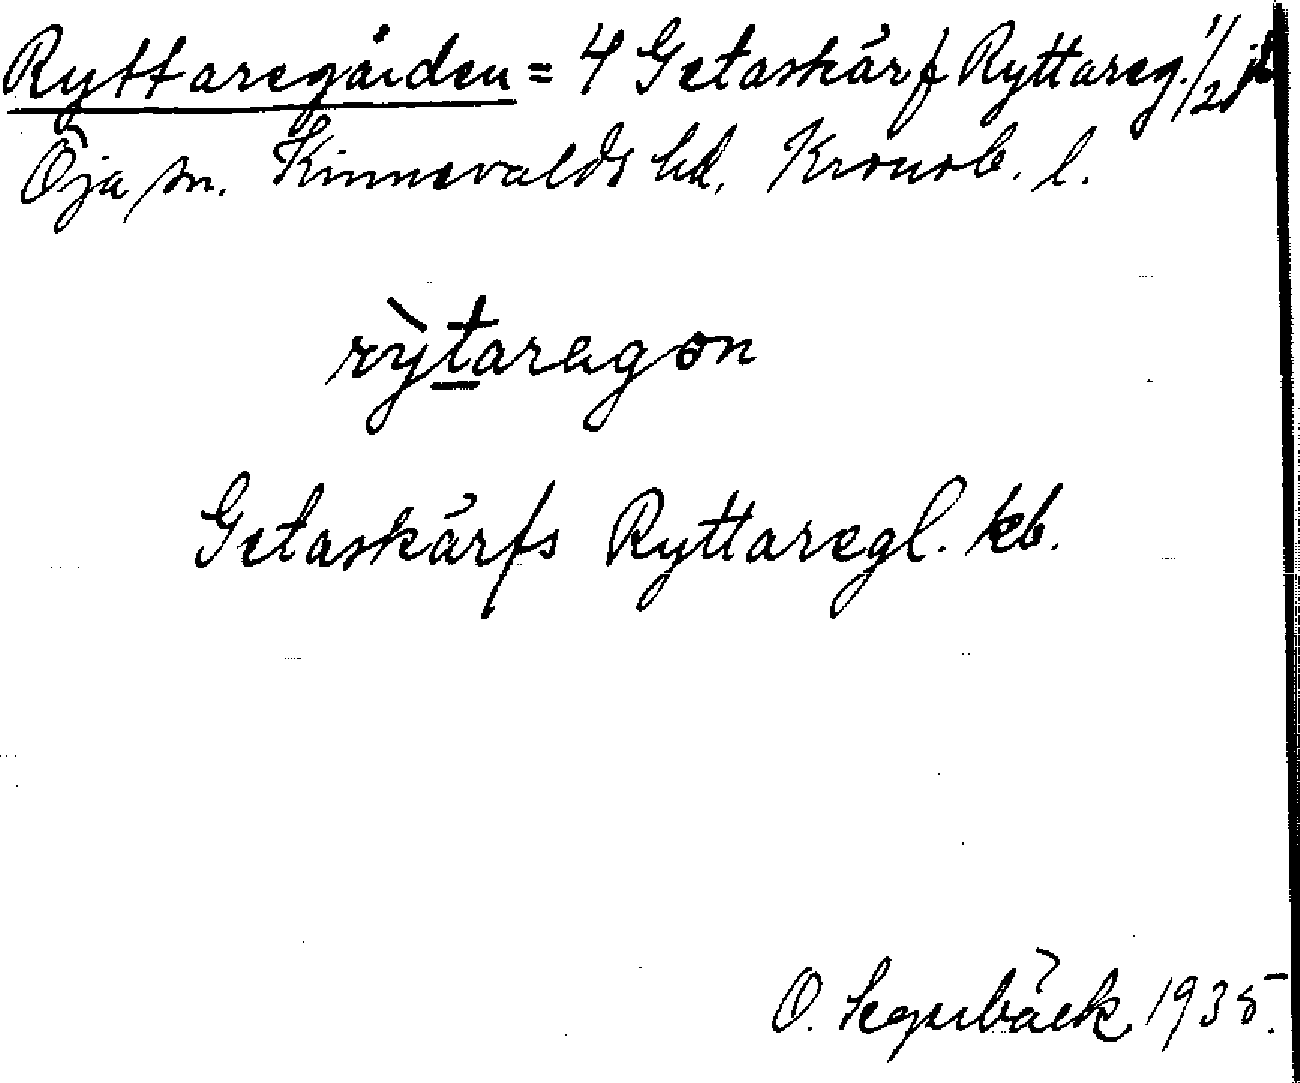 Ryttaregården = 4 Getaskärf Ryttareg. 1/2 jb
Öja sn. Kinnevalds hd. Kronob. l.
rỳtaregon
Getaskärfs Ryttaregl. kb.
O. 1935.